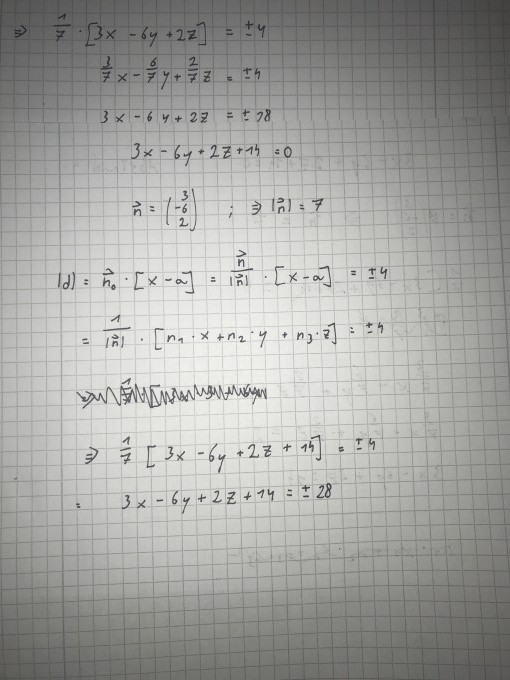 ⇒ 1/7 · [3x - 6y + 2z] = ±4
3/7 x - 6/7 y + 2/7 z = ±4
3x - 6y + 2z = ±28
3x - 6y + 2z + 14 = 0
n⃗ = (3 -6 2) ; ⇒ |n⃗| = 7
|d| = n⃗₀ · [x - a] = n⃗/|n⃗| · [x - a] = ±4
= 1/|n⃗| · [n₁ · x + n₂ · y + n₃ · z] = ±4
⇒ 1/7 [3x - 6y + 2z + 14] = ±4
= 3x - 6y + 2z + 14 = ±28